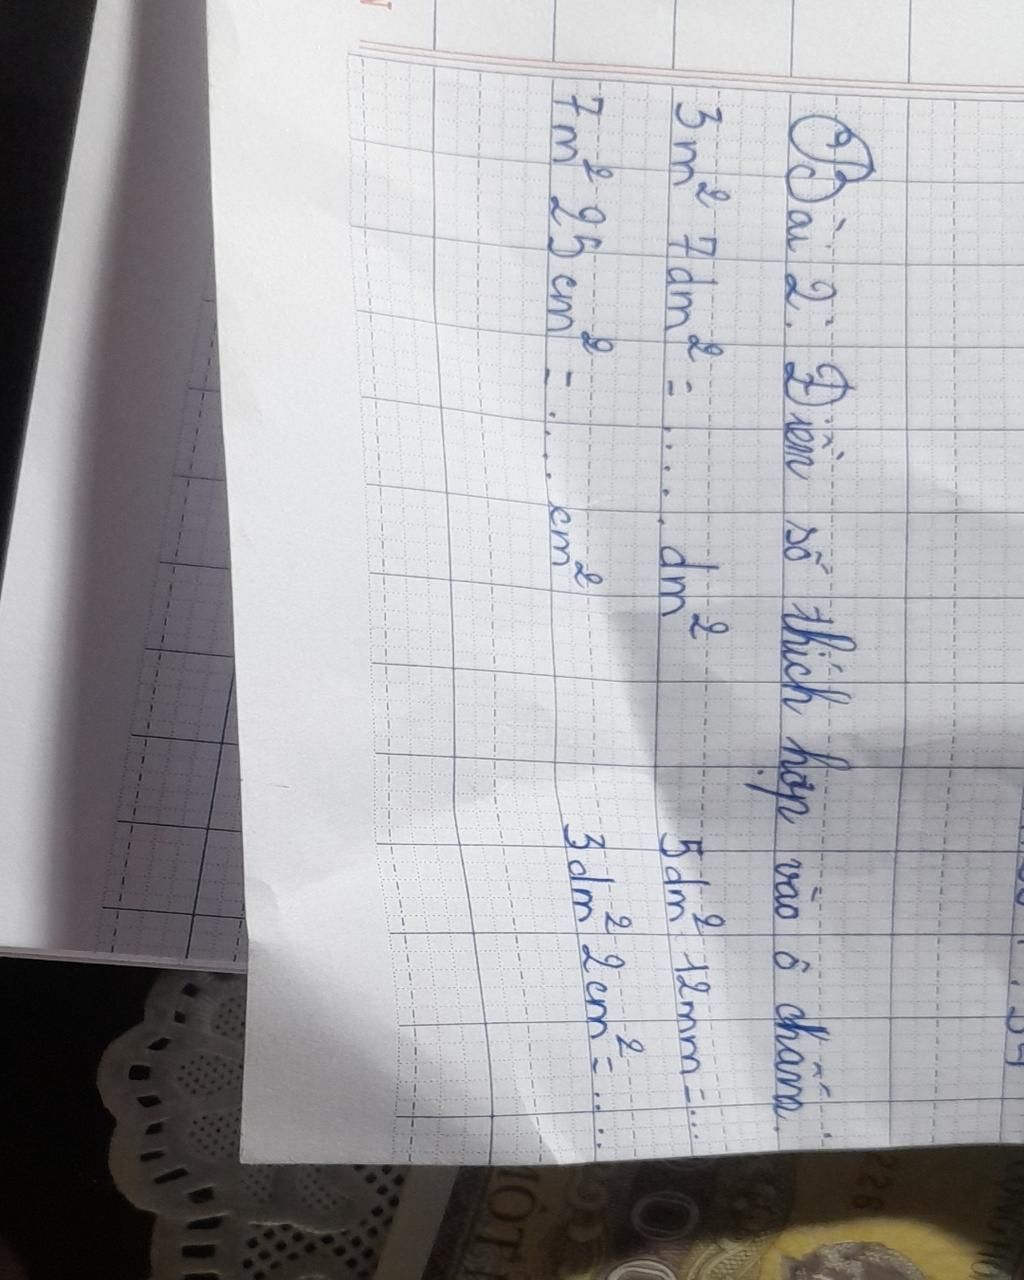 Bài 2: Điền số thích hợp vào ô chấm.
3m² 7dm² = .... dm² 5dm² 12mm = ...
7m² 25cm² = .... cm² 3dm² 2cm² = ....
MỘT
226